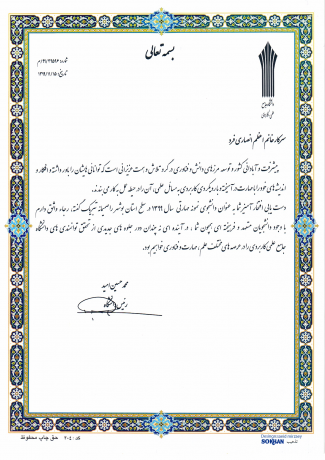 بسمه تعالی
شماره: ۴۱/۲۹۵۸۶/م
تاریخ: ۱۳۹۹/۰۷/۱۵
دانشگاه جامع
علمی-کاربردی
سرکار خانم اعظم انصاری فرد
پیشرفت و آبادانی کشور و توسعه مرزهای دانش و فناوری در گرو تلاش و همت عزیزانی است که توانایی هایشان را باور داشته و افکار و
اندیشه های خود را با مهارت درآمیخته و با رویکردی کاربردی به مسائل علمی، آن را در حیطه عمل به کار می بندند.
دست یابی افتخار آمیز شما به عنوان دانشجوی نمونه مهارتی سال ۱۳۹۹ در سطح استان بوشهر را صمیمانه تبریک گفته، رجاء واثق دارم
با وجود دانشجویان متعهد و فرهیخته ای همچون شما، در آینده ای نه چندان دور جلوه های جدیدی از تحقق توانمندی های دانشگاه
جامع علمی کاربردی را در عرصه های مختلف علم، مهارت و فناوری خواهیم بود.
محمد حسین امید
رئیس دانشگاه
کد: ۲۰۴ حق چاپ محفوظ
SOKHAN